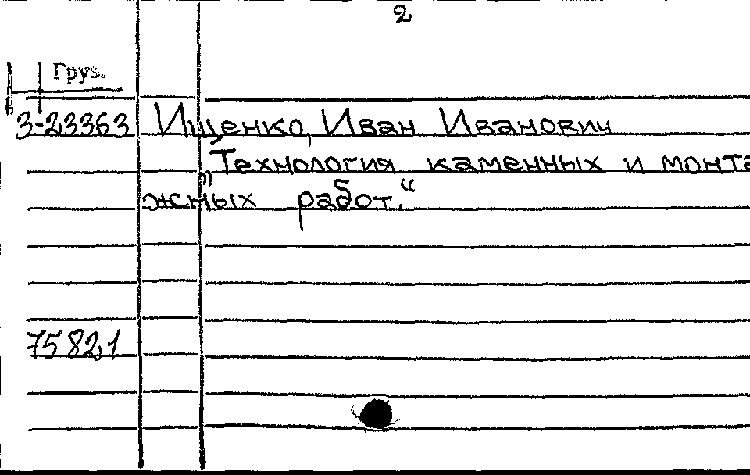 2
Груз.
3-23363 Ищенко, Иван Иванович
„Технология каменных и монта
жных работ.“
75821